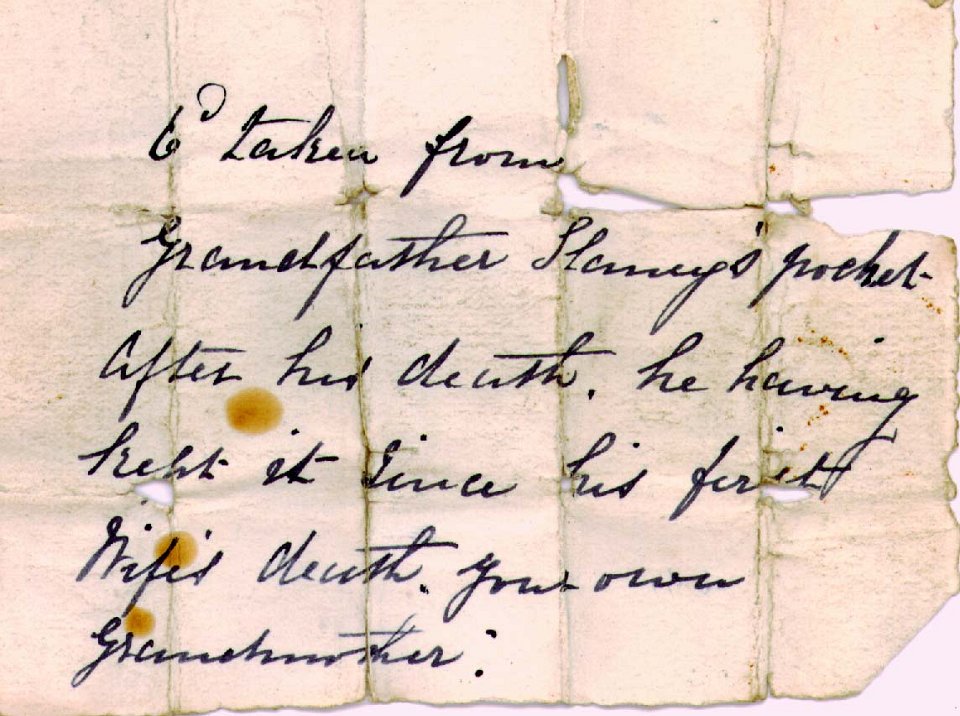 taken from
Grandfather Slaney's pocket
After his death. he having
kept it since his first
Wife's death. your own
Grandmother.